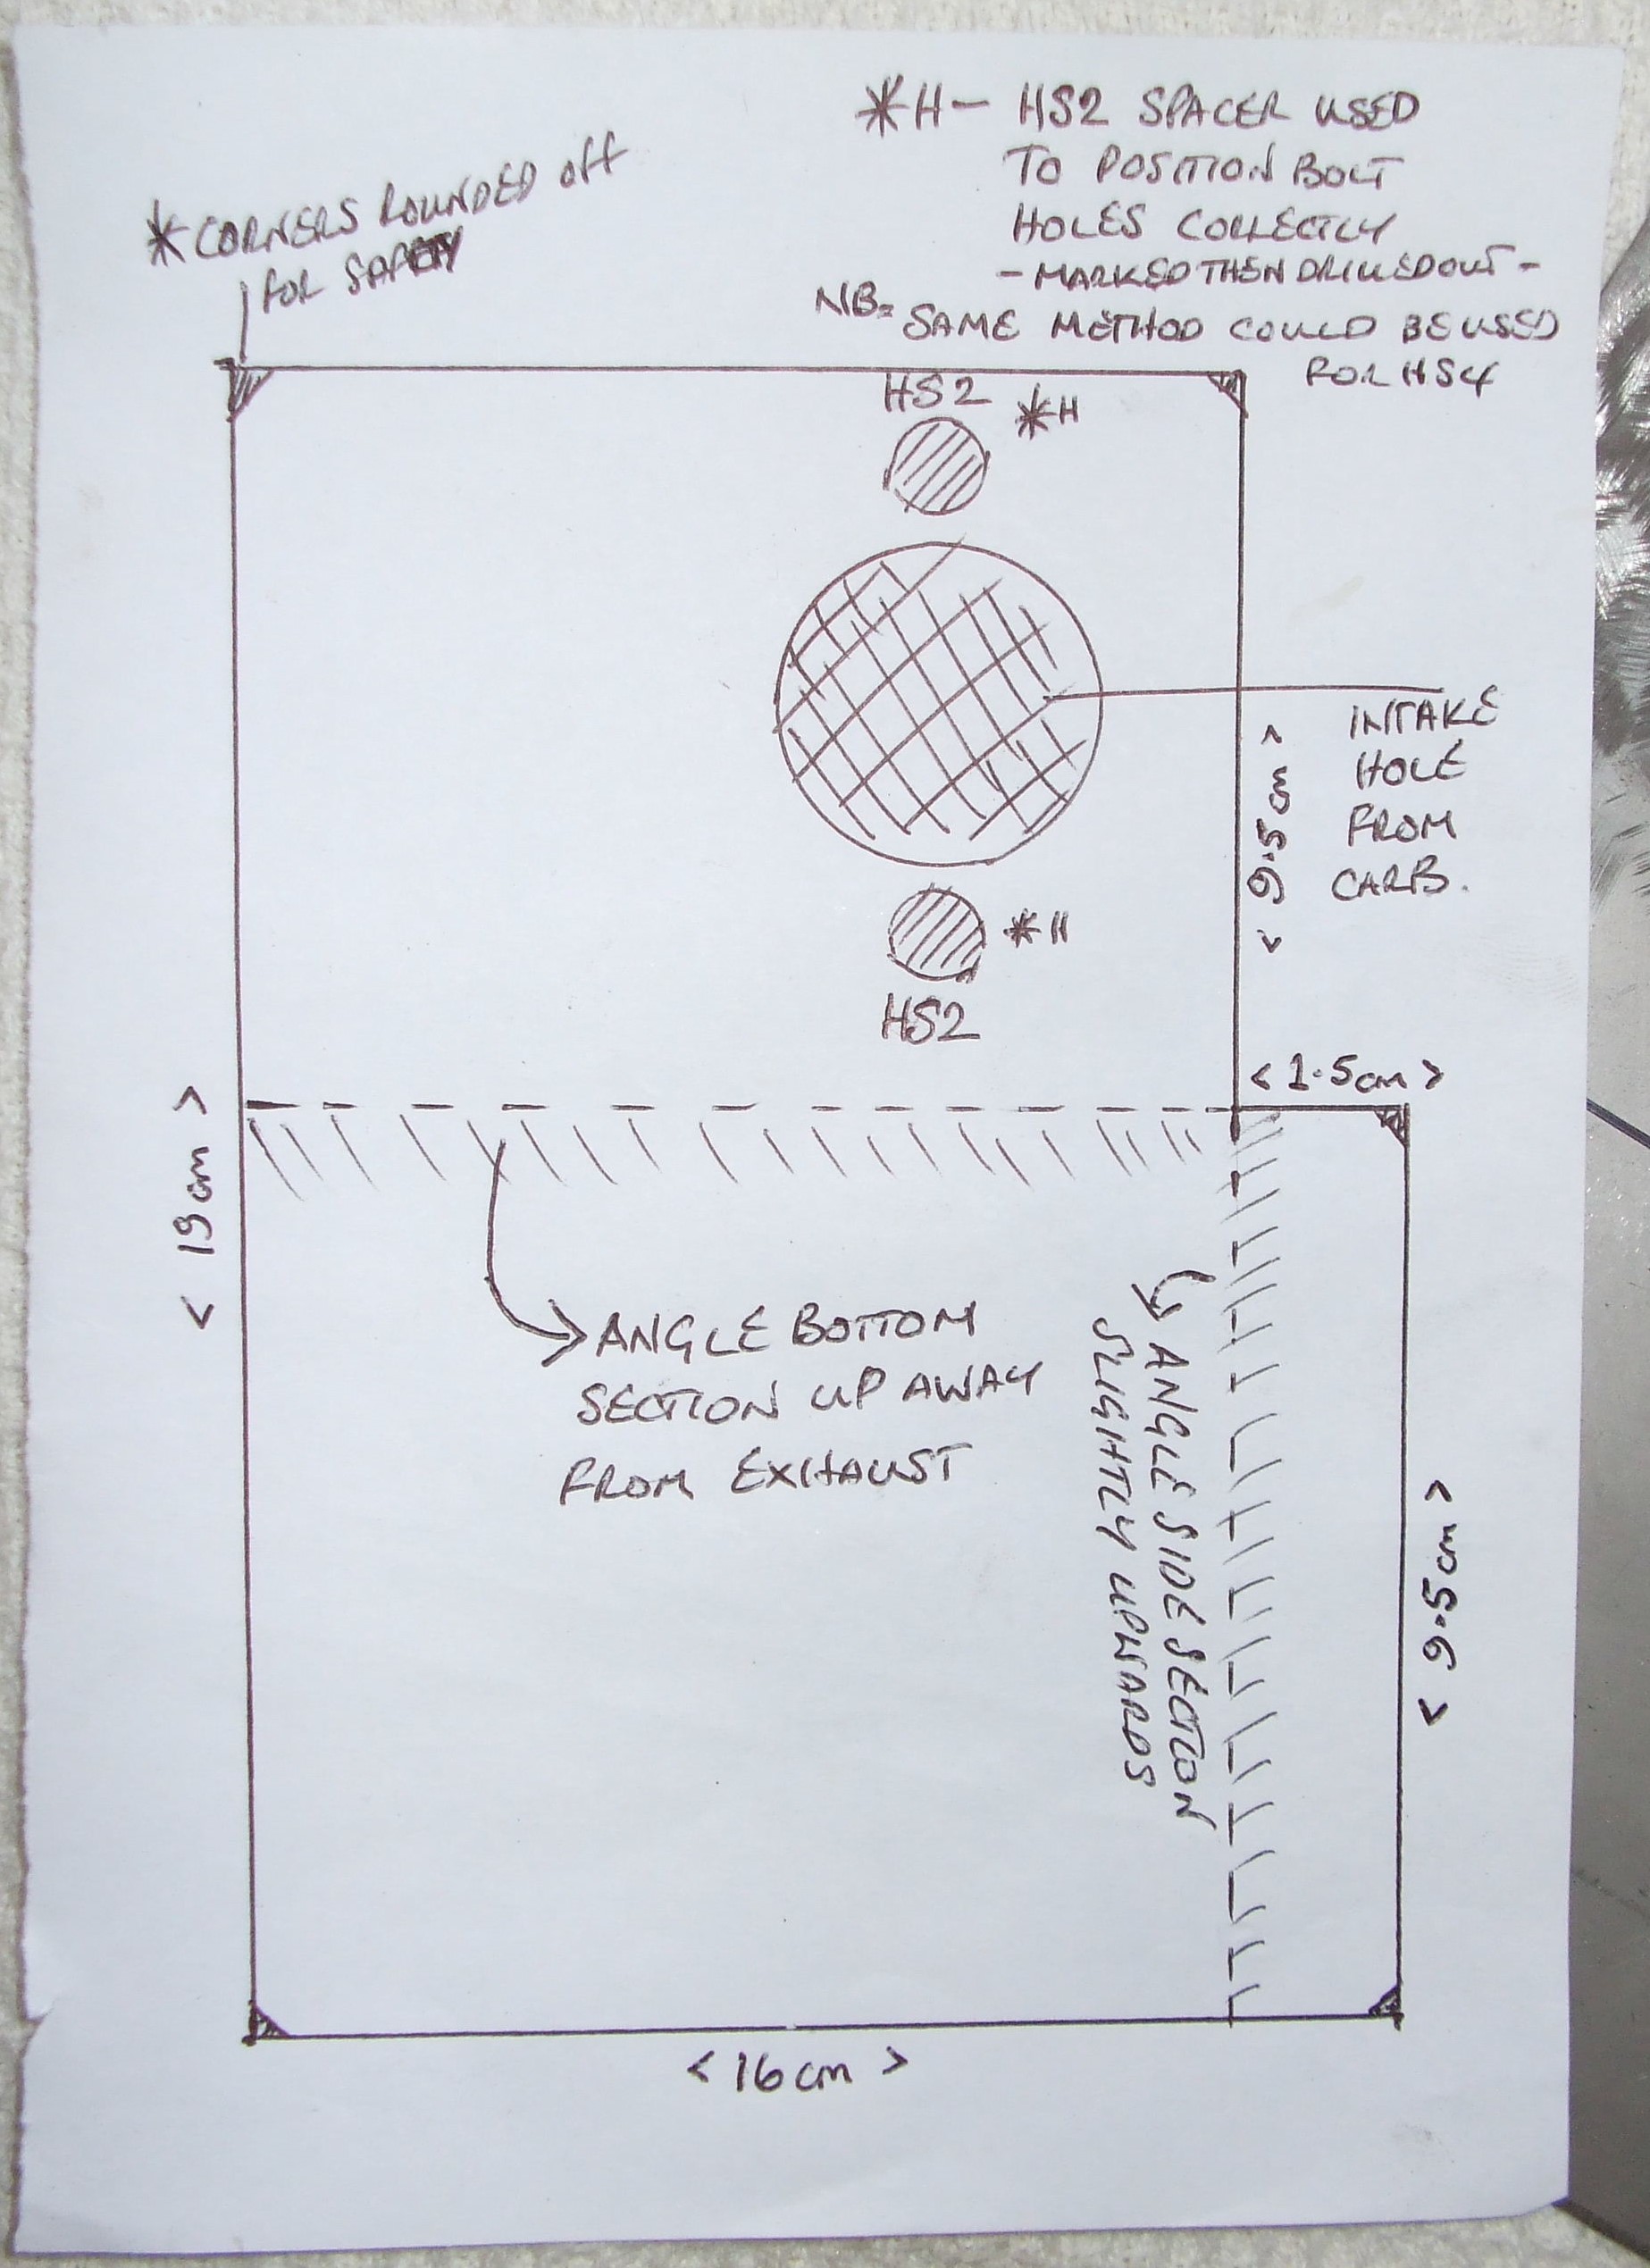 *H- HS2 SPACER USED
TO POSITION BOLT
HOLES CORRECTLY
- MARKED THEN DRILLED OUT -
NB= SAME METHOD COULD BE USED
FOR HS4
*CORNERS ROUNDED off
FOR SAFETY
HS2
*H
INTAKE
HOLE
FROM
CARB.
< 9.5cm >
*H
HS2
< 1.5cm >
< 19cm >
ANGLE BOTTOM
SECTION UP AWAY
FROM EXHAUST
ANGLE SIDE SECTION
SLIGHTLY UPWARDS
< 9.5cm >
< 16cm >